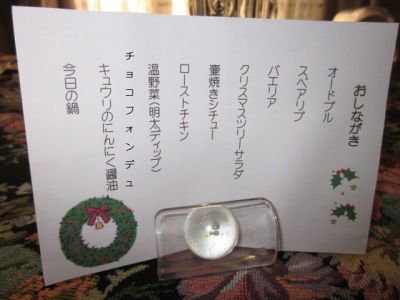 おしながき
オードブル
スペアリブ
パエリア
クリスマスツリーサラダ
壷焼きシチュー
ローストチキン
温野菜(明太ディップ)
チョコフォンデュ
キュウリのにんにく醤油
今日の鍋